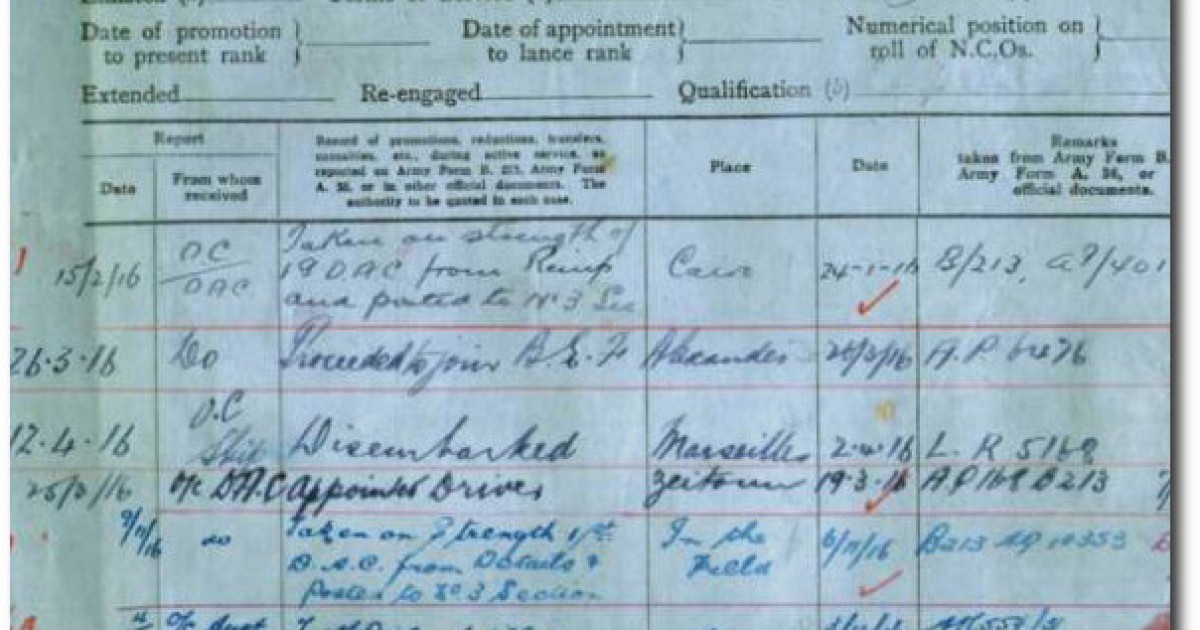 Date of promotion } Date of appointment } Numerical position on }
to present rank } to lance rank } roll of N.C.Os. }
Extended Re-engaged Qualification (b)
Report
Record of promotions, reductions, transfers,
casualties, etc., during active service, as
reported on Army Form B. 213, Army Form
A. 36, or in other official documents. The
authority to be quoted in each case.
Place
Date
Remarks
taken from Army Form B.
Army Form A. 36, or
official documents.
Date
From whom
received
15/2/16 OC DAC
Taken on strength of
1st DAC from Reinf
and posted to No 3 Sec
Cairo 24-1-16 B/213,
26.3.16 Do Proceeded to join B.E.F Alexandria A.P
12.4.16 O.C Ship Disembarked Marseilles L. R
O/C DAC Appointed Driver Zeitoun 19.3.16 B213
9/11/16 do
Taken on Strength 1st
D.A.C. from Details &
Posted to No 3 Section
In the
Field
6/11/16 B213 10353